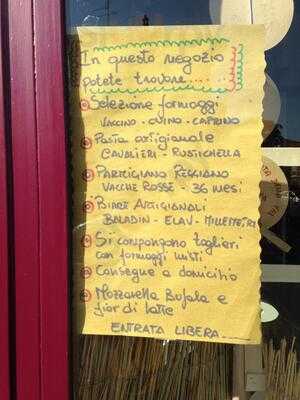 In questo negozio
potete trovare......
Selezione formaggi
VACCINO - OVINO - CAPRINO
Pasta artigianale
CAVALIERI - RUSTICHELLA
PARMIGIANO REGGIANO
VACCHE ROSSE - 36 MESI
BIRRE ARTIGIANALI
BALADIN - ELAV -
Si compongono taglieri
con formaggi misti
Consegne a domicilio
Mozzarella Bufala e
fior di latte
ENTRATA LIBERA.....